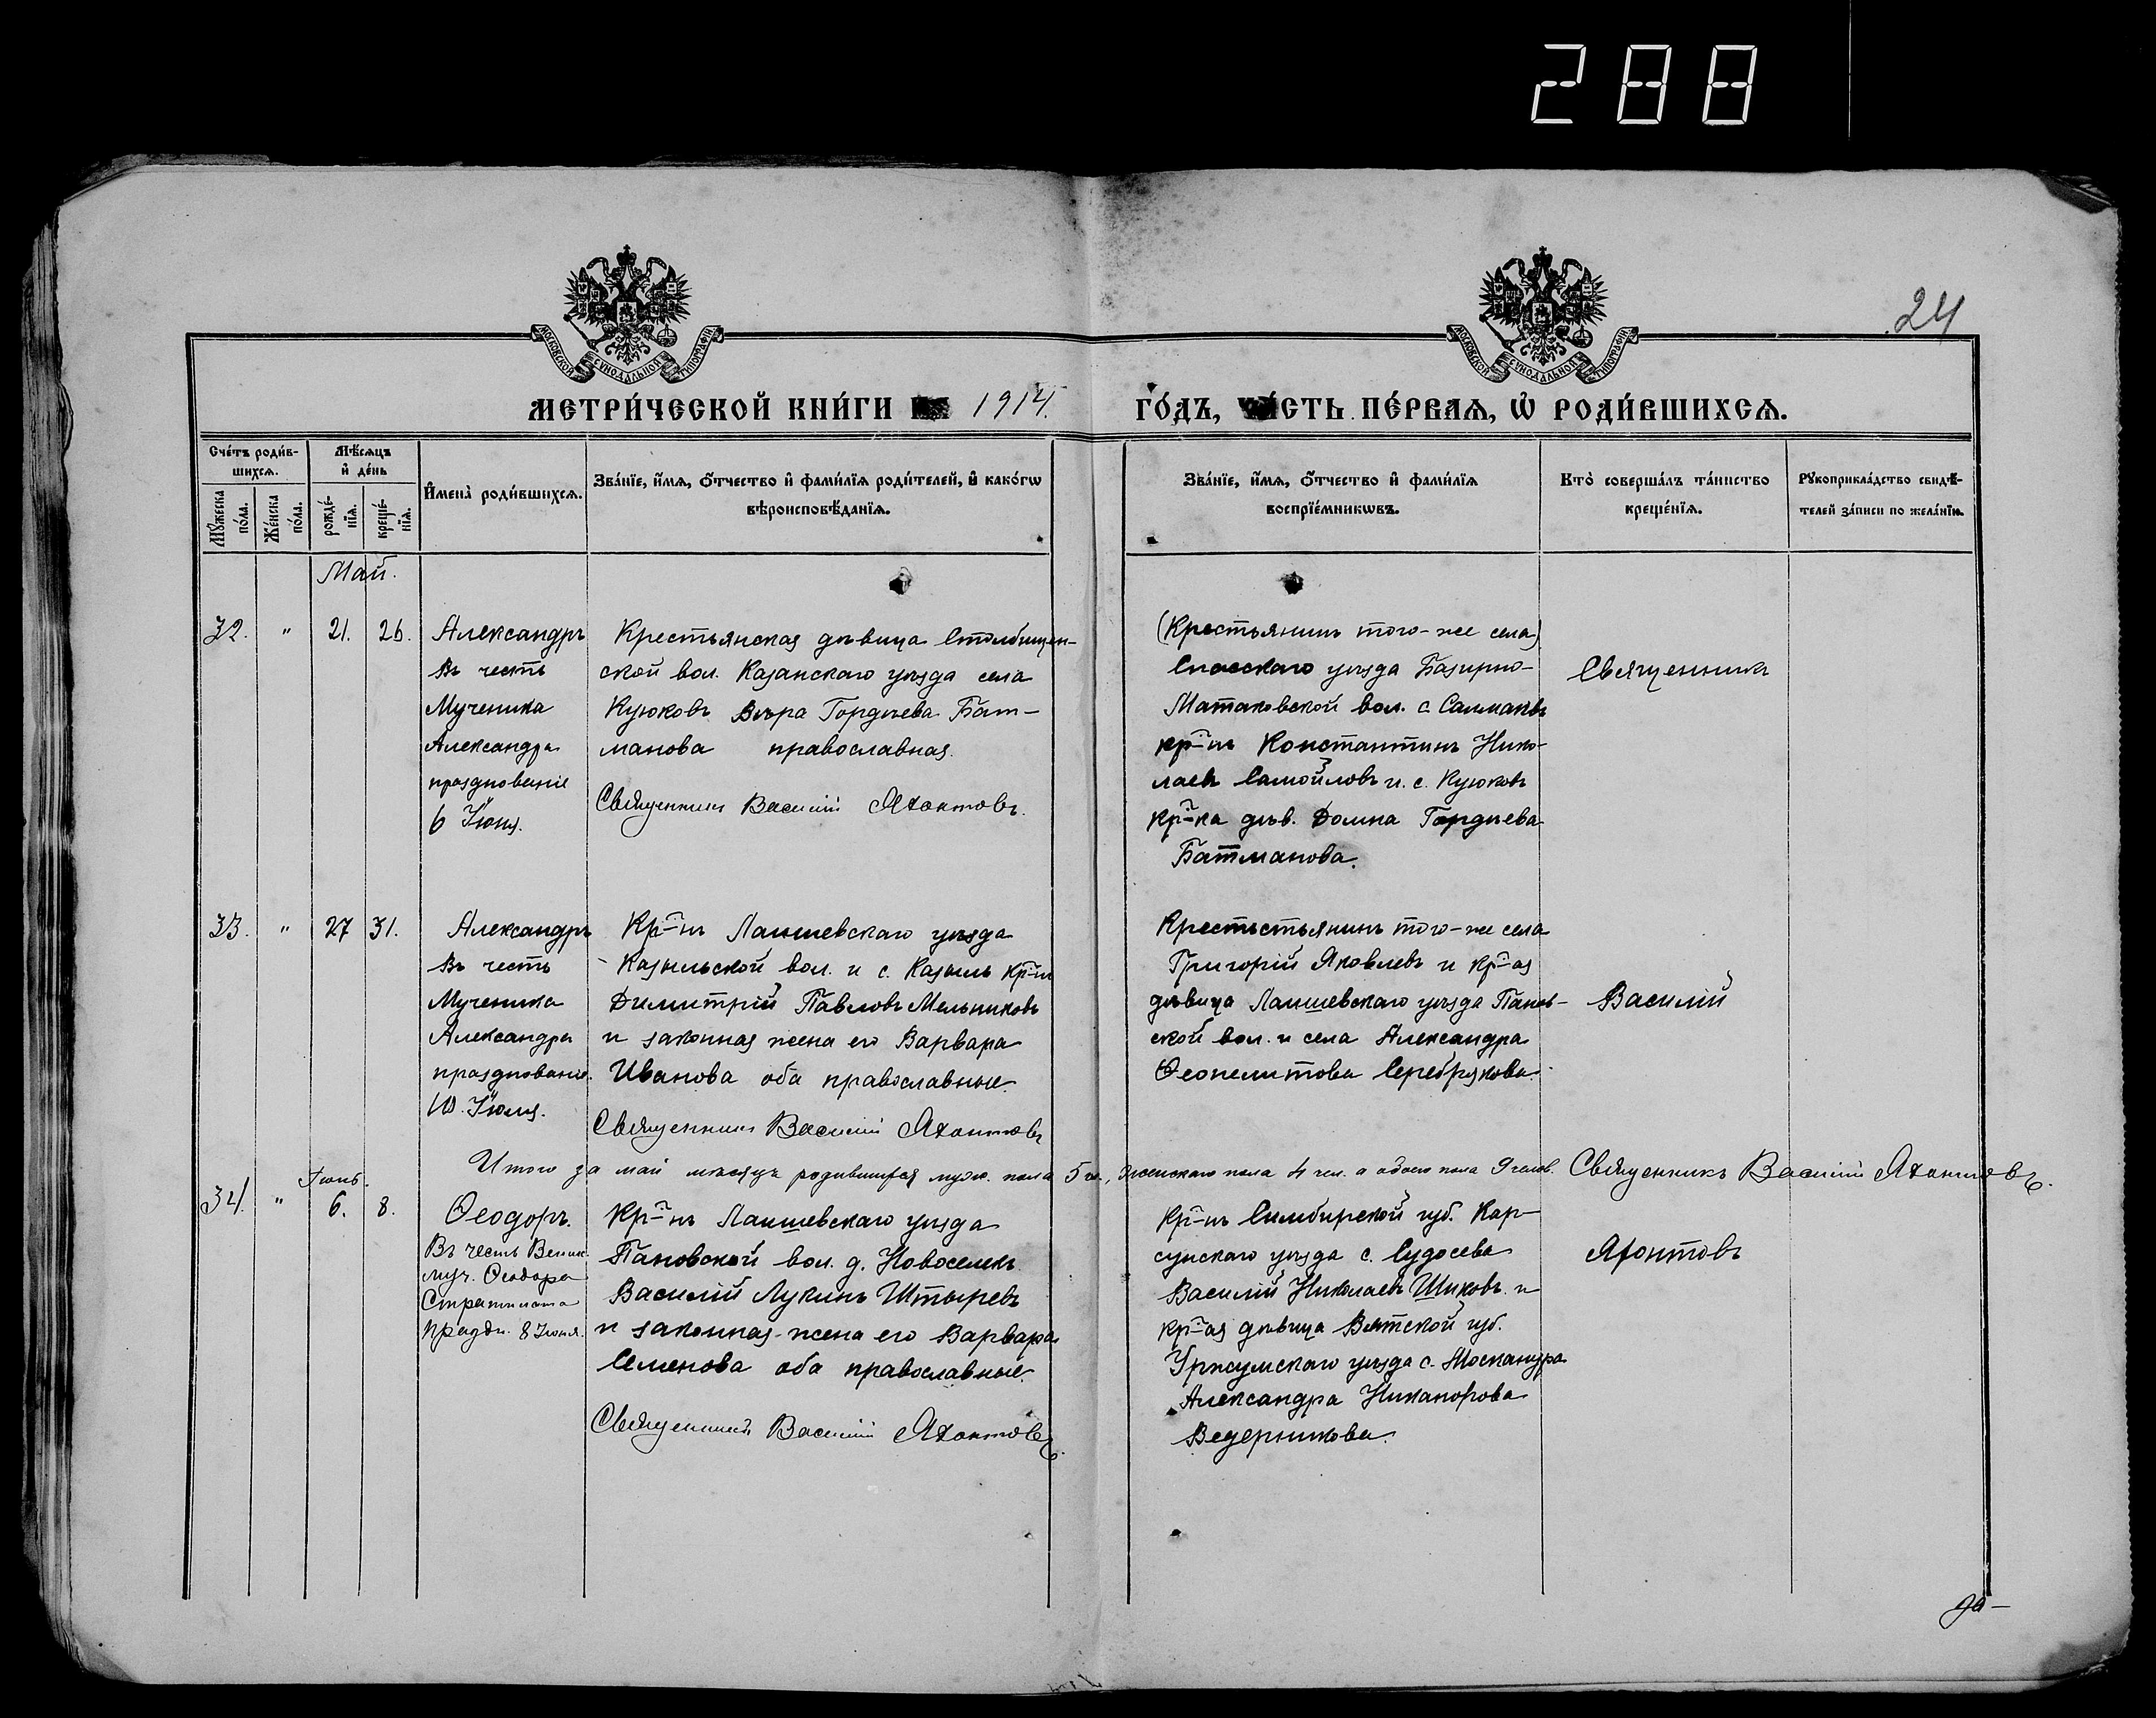 288
24
МОСКОВСКОЙ СУНОДАЛЬНОЙ ТИПОГРАФІИ
МОСКОВСКОЙ СУНОДАЛЬНОЙ ТИПОГРАФІИ
МЕТРИ́ЧЕСКОЙ КНИ́ГИ 1914. ГО́ДЪ, ЧА́СТЬ ПЕ́РВАЯ, Ѡ҆ РОДИ́ВШИХСЯ.
Сче́тъ роди́в-
шихся.
Мꙋ́жеска по́ла.
Же́нска по́ла.
Мѣ́сяцъ
и҆ де́нь
рожде́-
нїя.
креще́-
нїя.
И҆мена̀ роди́вшихся.
Зва́нїе, и҆́мя, ѻ҆́тчество и҆ фами́лїя роди́телей, и҆ како́гѡ
вѣроисповѣ́данїя.
Зва́нїе, и҆́мя, ѻ҆́тчество и҆ фами́лїя
воспрїе́мникѡвъ.
Кто̀ соверша́лъ та́инство
креще́нїя.
Рꙋкоприкла́дство свидѣ́-
телей за́писи по жела́нїю.
Май.
32. " 21. 26.
Александръ
въ честь
Мученика
Александра
празднованіе
6 Іюня.
Крестьянская дѣвица Столбищен-
ской вол. Казанскаго уѣзда села
Куюковъ Вѣра Гордѣева Бат-
манова православная.
Священникъ Василій Яхонтовъ.
(Крестьянинъ того-же села)
Спасскаго уѣзда Базарно-
Матаковской вол. с.
кр-нъ Константинъ Нико-
лаевъ Самойловъ и с. Куюковъ
кр-ка дѣв. Домна Гордѣева
Батманова.
Священникъ
33. " 27 31.
Александръ
въ честь
Мученика
Александра
празднованіе
10. Іюля.
Кр-нъ Лаишевскаго уѣзда
Казыльской вол. и с. Казыль кр-нъ
Димитрій Павловъ Мельниковъ
и законная жена его Варвара
Иванова оба православные.
Священникъ Василій Яхонтовъ
Крестьстьянинъ того-же села
Григорій Яковлевъ и кр-ая
дѣвица Лаишевскаго уѣзда Панов-
ской вол. и села Александра
Серебрякова.
Василій
Итого за май мѣсяцъ родившихся муж. пола 5 ч., женскаго пола 4 чел. а обоего пола 9 челов. Священникъ Василій Яхонтовъ.
Іюнь.
34. " 6. 8.
Ѳеодоръ.
Въ честь Велик.
муч. Ѳеодора
Стратилата
праздн. 8 Іюня.
Кр-нъ Лаишевскаго уѣзда
Пановской вол. д. Новоселекъ
Василій Лукинъ Штыревъ
и законная жена его Варвара
Семенова оба православные.
Священникъ Василій Яхонтовъ.
Кр-нъ Симбирской губ. Кар-
сунскаго уѣзда с. Судосева
Василій Николаевъ Шиковъ и
кр-ая дѣвица Вятской губ.
Уржумскаго уѣзда с.
Александра Никанорова
Ведерникова.
Яхонтовъ